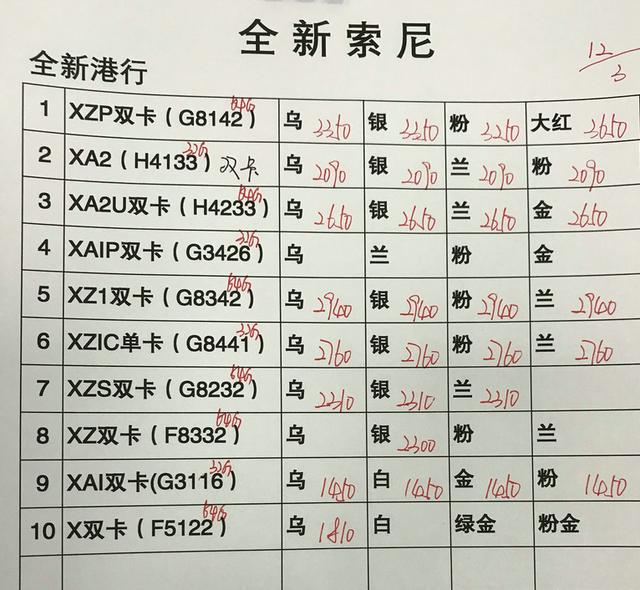 全新索尼
12/3
全新港行
1 XZP双卡（G8142）64G 乌 3350 银 3350 粉 3250 大红 3650
2 XA2（H4133）32G 双卡 乌 2090 银 2090 兰 2090 粉 2090
3 XA2U双卡（H4233）64G 乌 2650 银 2650 兰 2650 金 2650
4 XAIP双卡（G3426）32G 乌 兰 粉 金
5 XZ1双卡（G8342）64G 乌 2940 银 2940 粉 2940 兰 2940
6 XZIC单卡（G8441）32G 乌 2760 银 2760 粉 2760 兰 2760
7 XZS双卡（G8232）64G 乌 2310 银 2310 兰 2310
8 XZ双卡（F8332）64G 乌 银 2300 粉 兰
9 XAI双卡(G3116）32G 乌 1450 白 1450 金 1450 粉 1450
10 X双卡（F5122）64G 乌 1810 白 绿金 粉金